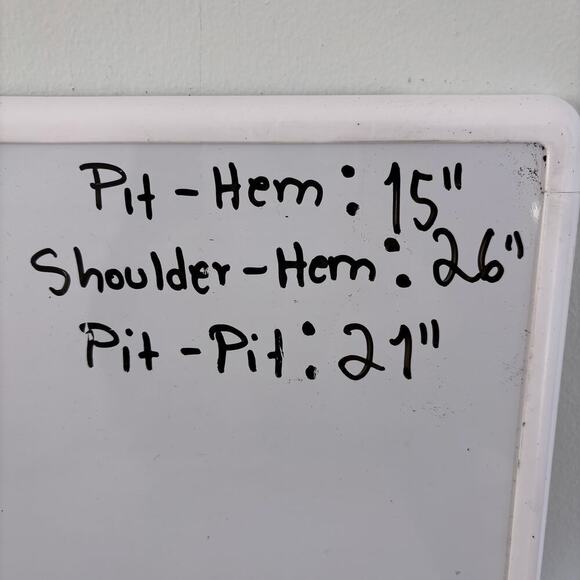 Pit - Hem: 15"
Shoulder - Hem: 26"
Pit - Pit: 21"